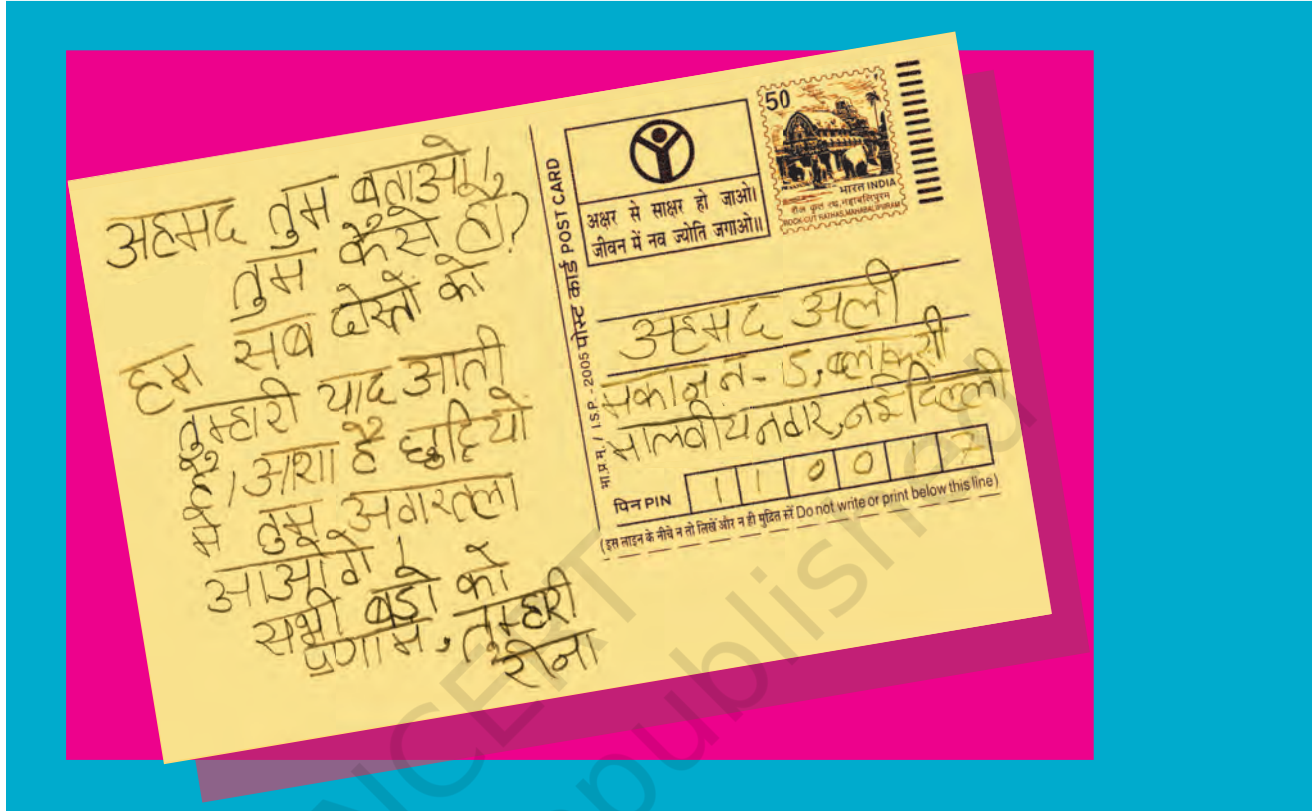 अहमद तुम बताओ,
तुम कैसे हो?
हम सब दोस्तों को
तुम्हारी याद आती
है। आशा है छुट्टियों
मे तुम अगरतला
आओगे।
सभी बड़ो को
प्रणाम, तुम्हारी
रीना
भा.प्र.मु. / I.S.P. - 2005 पोस्ट कार्ड POST CARD
अक्षर से साक्षर हो जाओ।
जीवन में नव ज्योति जगाओ॥
50
भारत INDIA
शैल कृत रथ, महाबलिपुरम
ROCK-CUT RATHAS, MAHABALIPURAM
अहमद अली
मकान न - 15, ब्लाक सी
मालवीय नगर, नई दिल्ली
पिन PIN 1 1 0 0 1 7
(इस लाइन के नीचे न तो लिखें और न ही मुद्रित करें Do not write or print below this line)
NCERT
republished